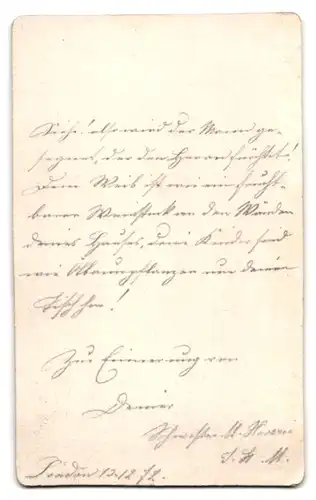 Siehe! also wird der Mann ge-
segnet, der den Herrn fürchtet!
Dein Weib ist wie ein frucht-
barer Weinstock an den Wänden
deines Hauses, deine Kinder sind
wie Ölbaumpflanzen um deinen
Tisch her!
Zur Erinnerung von
Deiner
Schwester M.
12.12 72.